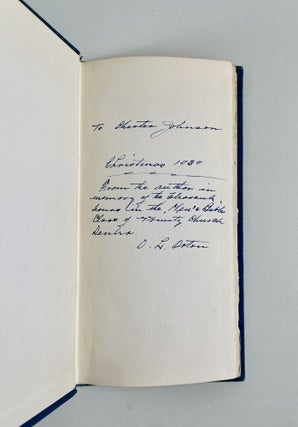 To Chester Johnson
Christmas 1930
From the author in
memory of the pleasant
hours in the Men's Bible
Class of Trinity Church